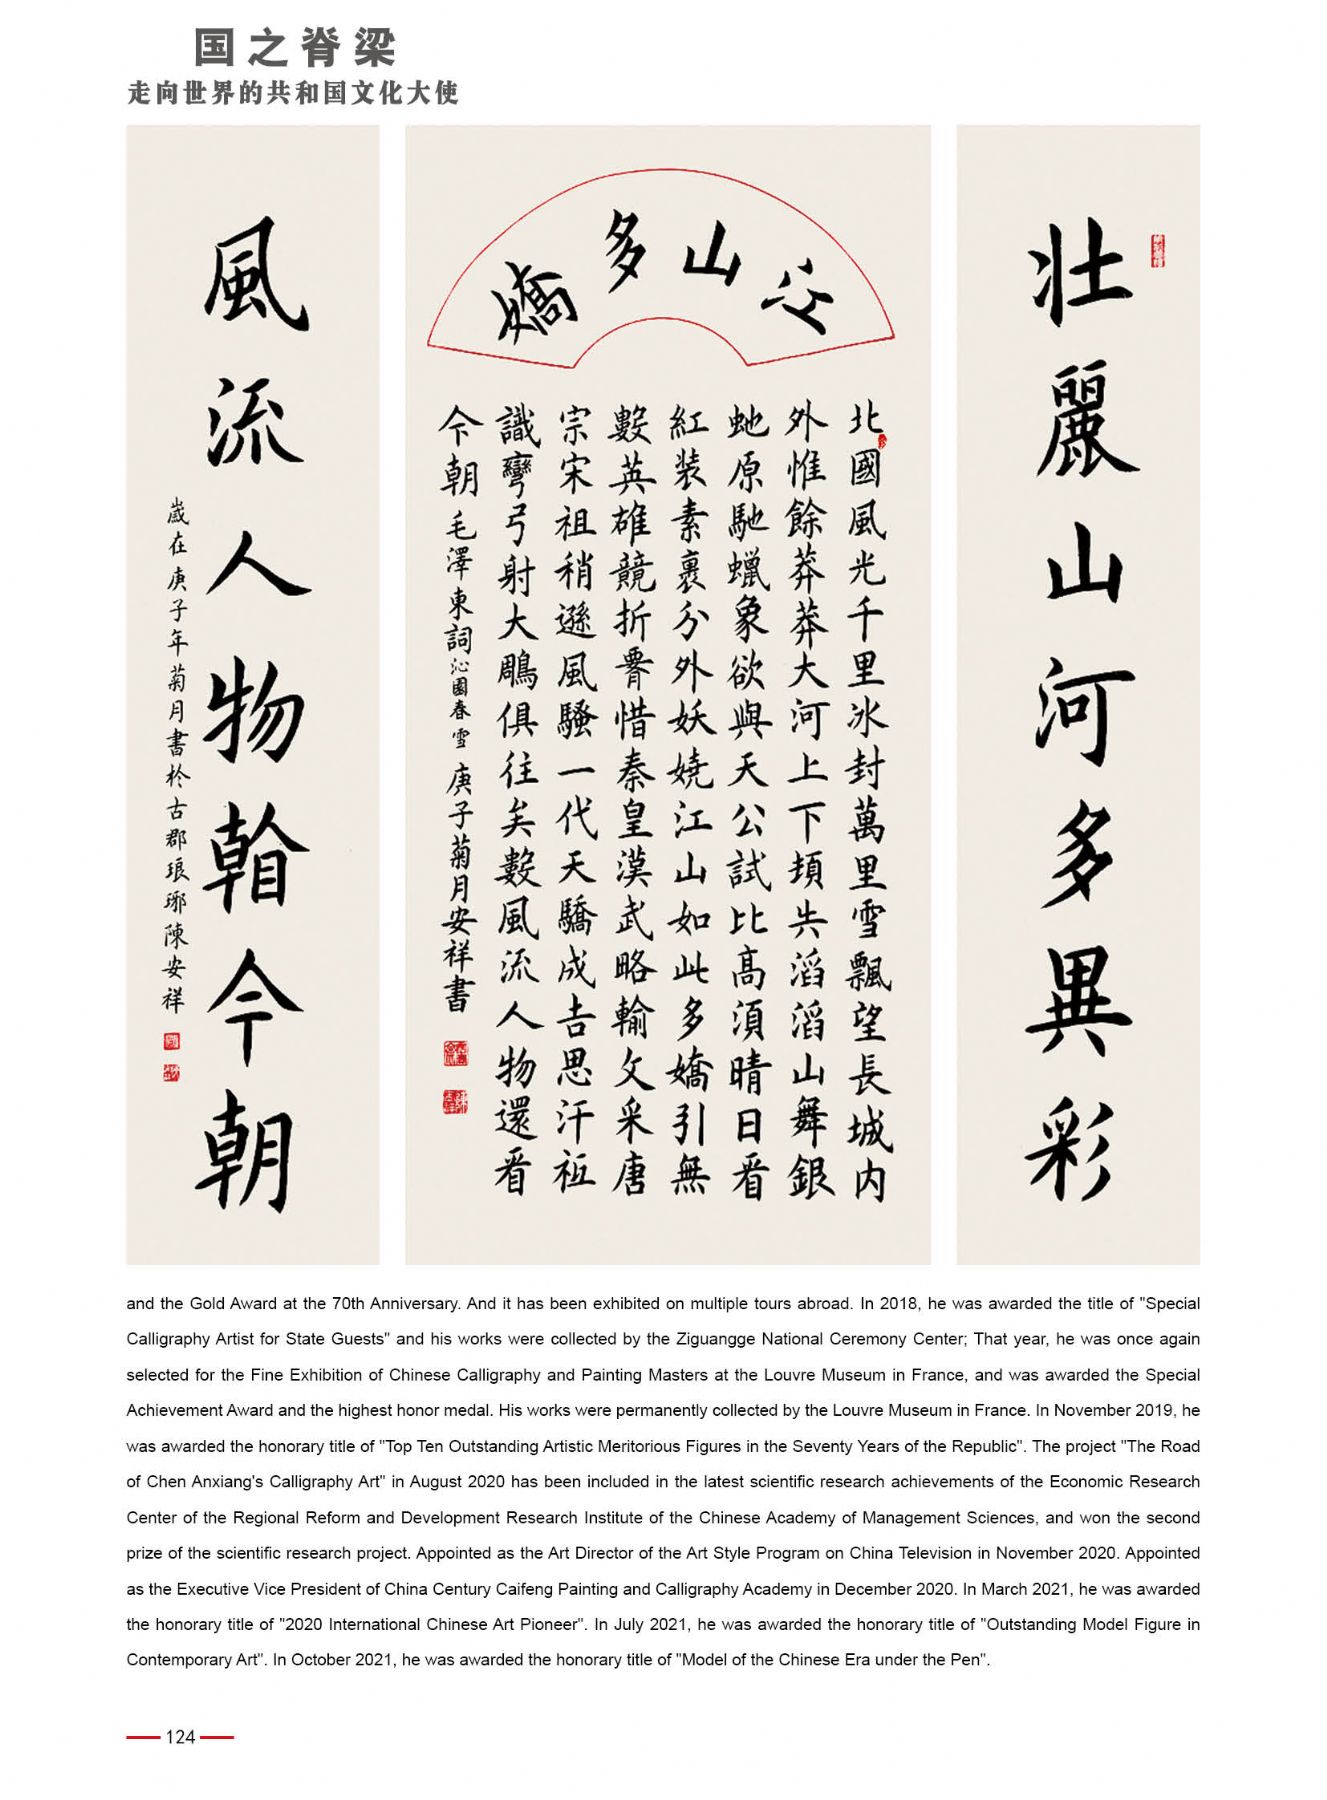 国之脊梁
走向世界的共和国文化大使
壮麗山河多異彩
江山多嬌
北國風光千里冰封萬里雪飄望長城内
外惟餘莽莽大河上下頓失滔滔山舞銀
虵原馳蠟象欲與天公試比高須晴日看
紅装素裹分外妖嬈江山如此多嬌引無
數英雄競折霄惜秦皇漢武略輸文采唐
宗宋祖稍遜風騷一代天驕成吉思汗衹
識彎弓射大鵰俱往矣數風流人物還看
今朝 毛澤東詞沁園春雪 庚子菊月安祥書
風流人物翰今朝
歲在庚子年菊月書於古郡琅琊陳安祥
and the Gold Award at the 70th Anniversary. And it has been exhibited on multiple tours abroad. In 2018, he was awarded the title of "Special
Calligraphy Artist for State Guests" and his works were collected by the Ziguangge National Ceremony Center; That year, he was once again
selected for the Fine Exhibition of Chinese Calligraphy and Painting Masters at the Louvre Museum in France, and was awarded the Special
Achievement Award and the highest honor medal. His works were permanently collected by the Louvre Museum in France. In November 2019, he
was awarded the honorary title of "Top Ten Outstanding Artistic Meritorious Figures in the Seventy Years of the Republic". The project "The Road
of Chen Anxiang's Calligraphy Art" in August 2020 has been included in the latest scientific research achievements of the Economic Research
Center of the Regional Reform and Development Research Institute of the Chinese Academy of Management Sciences, and won the second
prize of the scientific research project. Appointed as the Art Director of the Art Style Program on China Television in November 2020. Appointed
as the Executive Vice President of China Century Caifeng Painting and Calligraphy Academy in December 2020. In March 2021, he was awarded
the honorary title of "2020 International Chinese Art Pioneer". In July 2021, he was awarded the honorary title of "Outstanding Model Figure in
Contemporary Art". In October 2021, he was awarded the honorary title of "Model of the Chinese Era under the Pen".
124